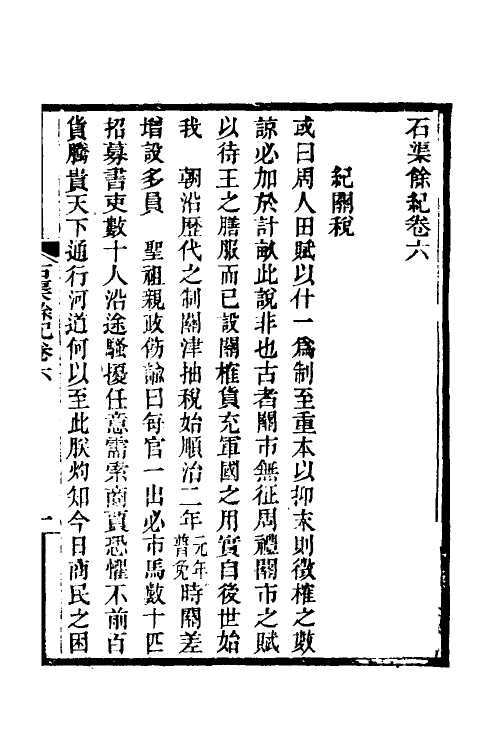 石渠餘紀卷六
紀關稅
或曰周人田賦以什一爲制至重本以抑末則徵榷之數
諒必加於計畝此說非也古者關市無征周禮關市之賦
以待王之膳服而已設關榷貨充軍國之用實自後世始
我　朝沿歷代之制關津抽稅始順治二年元年普免時關差
增設多員　聖祖親政傷諭曰每官一出必市馬數十四
招募書吏數十人沿途騷擾任意需索商賈恐懼不前百
貨騰貴天下通行河道何以至此朕灼知今日商民之困
石渠餘紀卷六
一